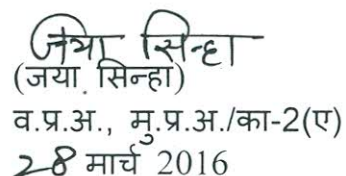 जया सिन्हा
(जया सिन्हा)
व.प्र.अ., मु.प्र.अ./का-2(ए)
28 मार्च 2016